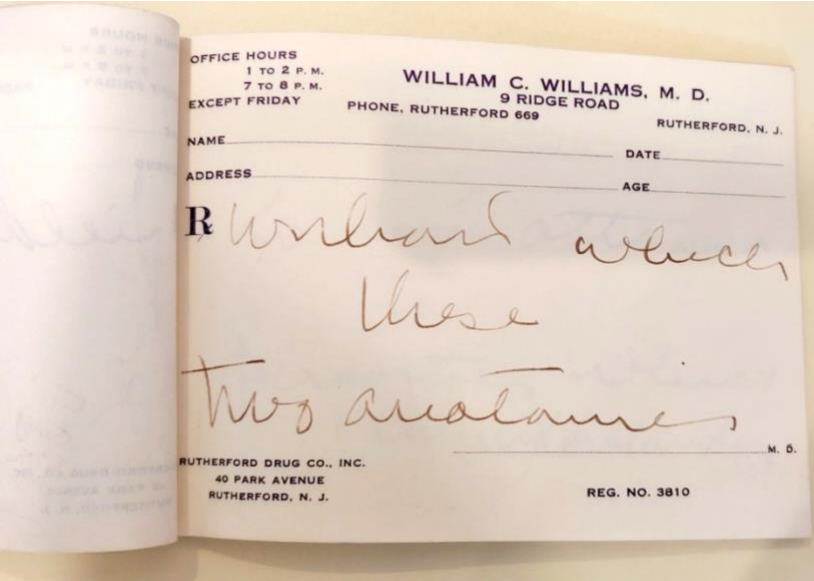 OFFICE HOURS
1 TO 2 P. M.
7 TO 8 P. M.
EXCEPT FRIDAY
WILLIAM C. WILLIAMS, M. D.
9 RIDGE ROAD
PHONE, RUTHERFORD 669
RUTHERFORD, N. J.
NAME
DATE
ADDRESS
AGE
℞ without which
these
two anatomies
M. D.
RUTHERFORD DRUG CO., INC.
40 PARK AVENUE
RUTHERFORD, N. J.
REG. NO. 3810